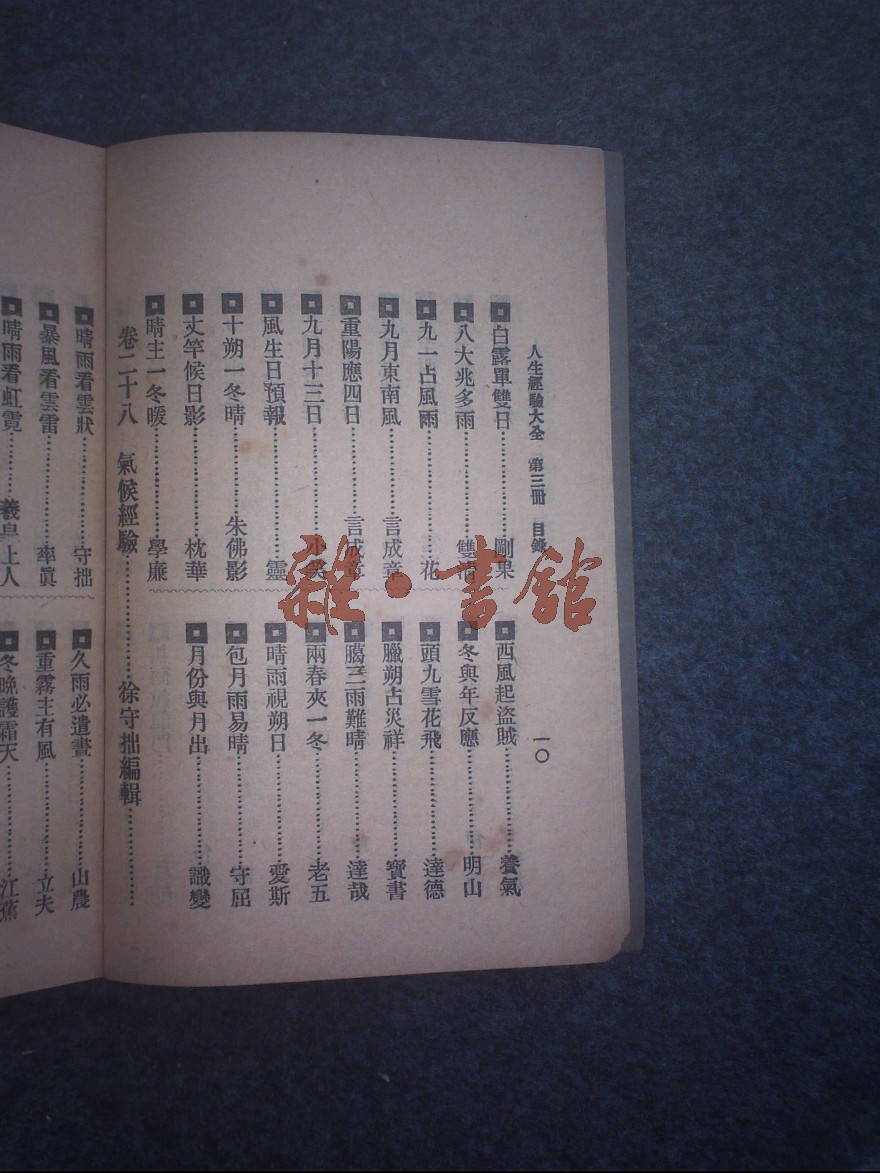 人生經驗大全 第三冊 目錄 一〇
白露單雙日 剛果
八大兆多雨 雙清
九一占風雨 花
九月東南風 言成章
重陽應四日 言成章
九月十三日 小笑
風生日預報 靈
十朔一冬晴 朱佛影
丈竿候日影 枕華
晴主一冬暖 學廉
西風起盜賊 養氣
冬與年反應 明山
頭九雪花飛 達德
臘朔占災祥 寶書
臈三雨難晴 達哉
兩春夾一冬 老五
晴雨視朔日 愛斯
包月雨易晴 守屈
月份與月出 識變
卷二十八 氣候經驗 徐守拙編輯
晴雨看雲狀 守拙
暴風看雲雷 率眞
晴雨看虹霓 羲皇上人
久雨必遺晝 山農
重霧主有風 立夫
冬晚護霜天 江蕉
雜·書館